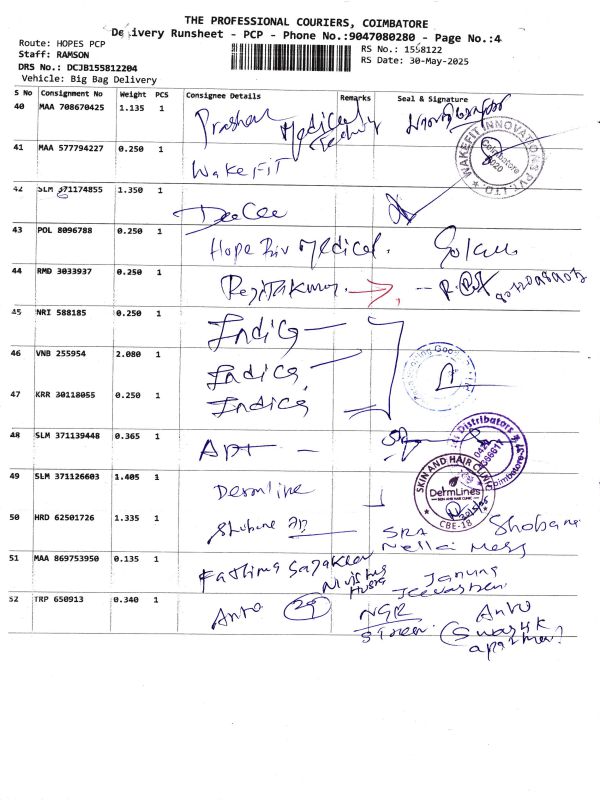 THE PROFESSIONAL COURIERS, COIMBATORE
Delivery Runsheet - PCP - Phone No.:9047080280 - Page No.:4
Route: HOPES PCP
Staff: RAMSON
DRS No.: DCJB155812204
Vehicle: Big Bag Delivery
RS No.: 1558122
RS Date: 30-May-2025
S No Consignment No Weight PCS Consignee Details Remarks Seal & Signature
40 MAA 708670425 1.135 1
Medical
41 MAA 577794227 0.250 1 WakeFiT
WAKEFIT INNOVATIONS PVT. LTD.
Coimbatore
42 SLM 371174855 1.350 1 DeeCee
43 POL 8096788 0.250 1 Hope Medical. Gokul
44 RMD 3033937 0.250 1
45 NRI 588185 0.250 1 Indica
46 VNB 255954 2.080 1 Indica
47 KRR 30118055 0.250 1 Indica
48 SLM 371139448 0.365 1 APT
Distributors
Coimbatore
49 SLM 371126603 1.405 1 Dermline
SKIN AND HAIR CLINIC
DermLines
SKIN AND HAIR CLINIC
CBE-18
50 HRD 62501726 1.335 1 Shobana
SRR Nellai Mess
51 MAA 869753950 0.135 1 Fathima
52 TRP 650913 0.340 1 Anto 29 NGR Street. Anto